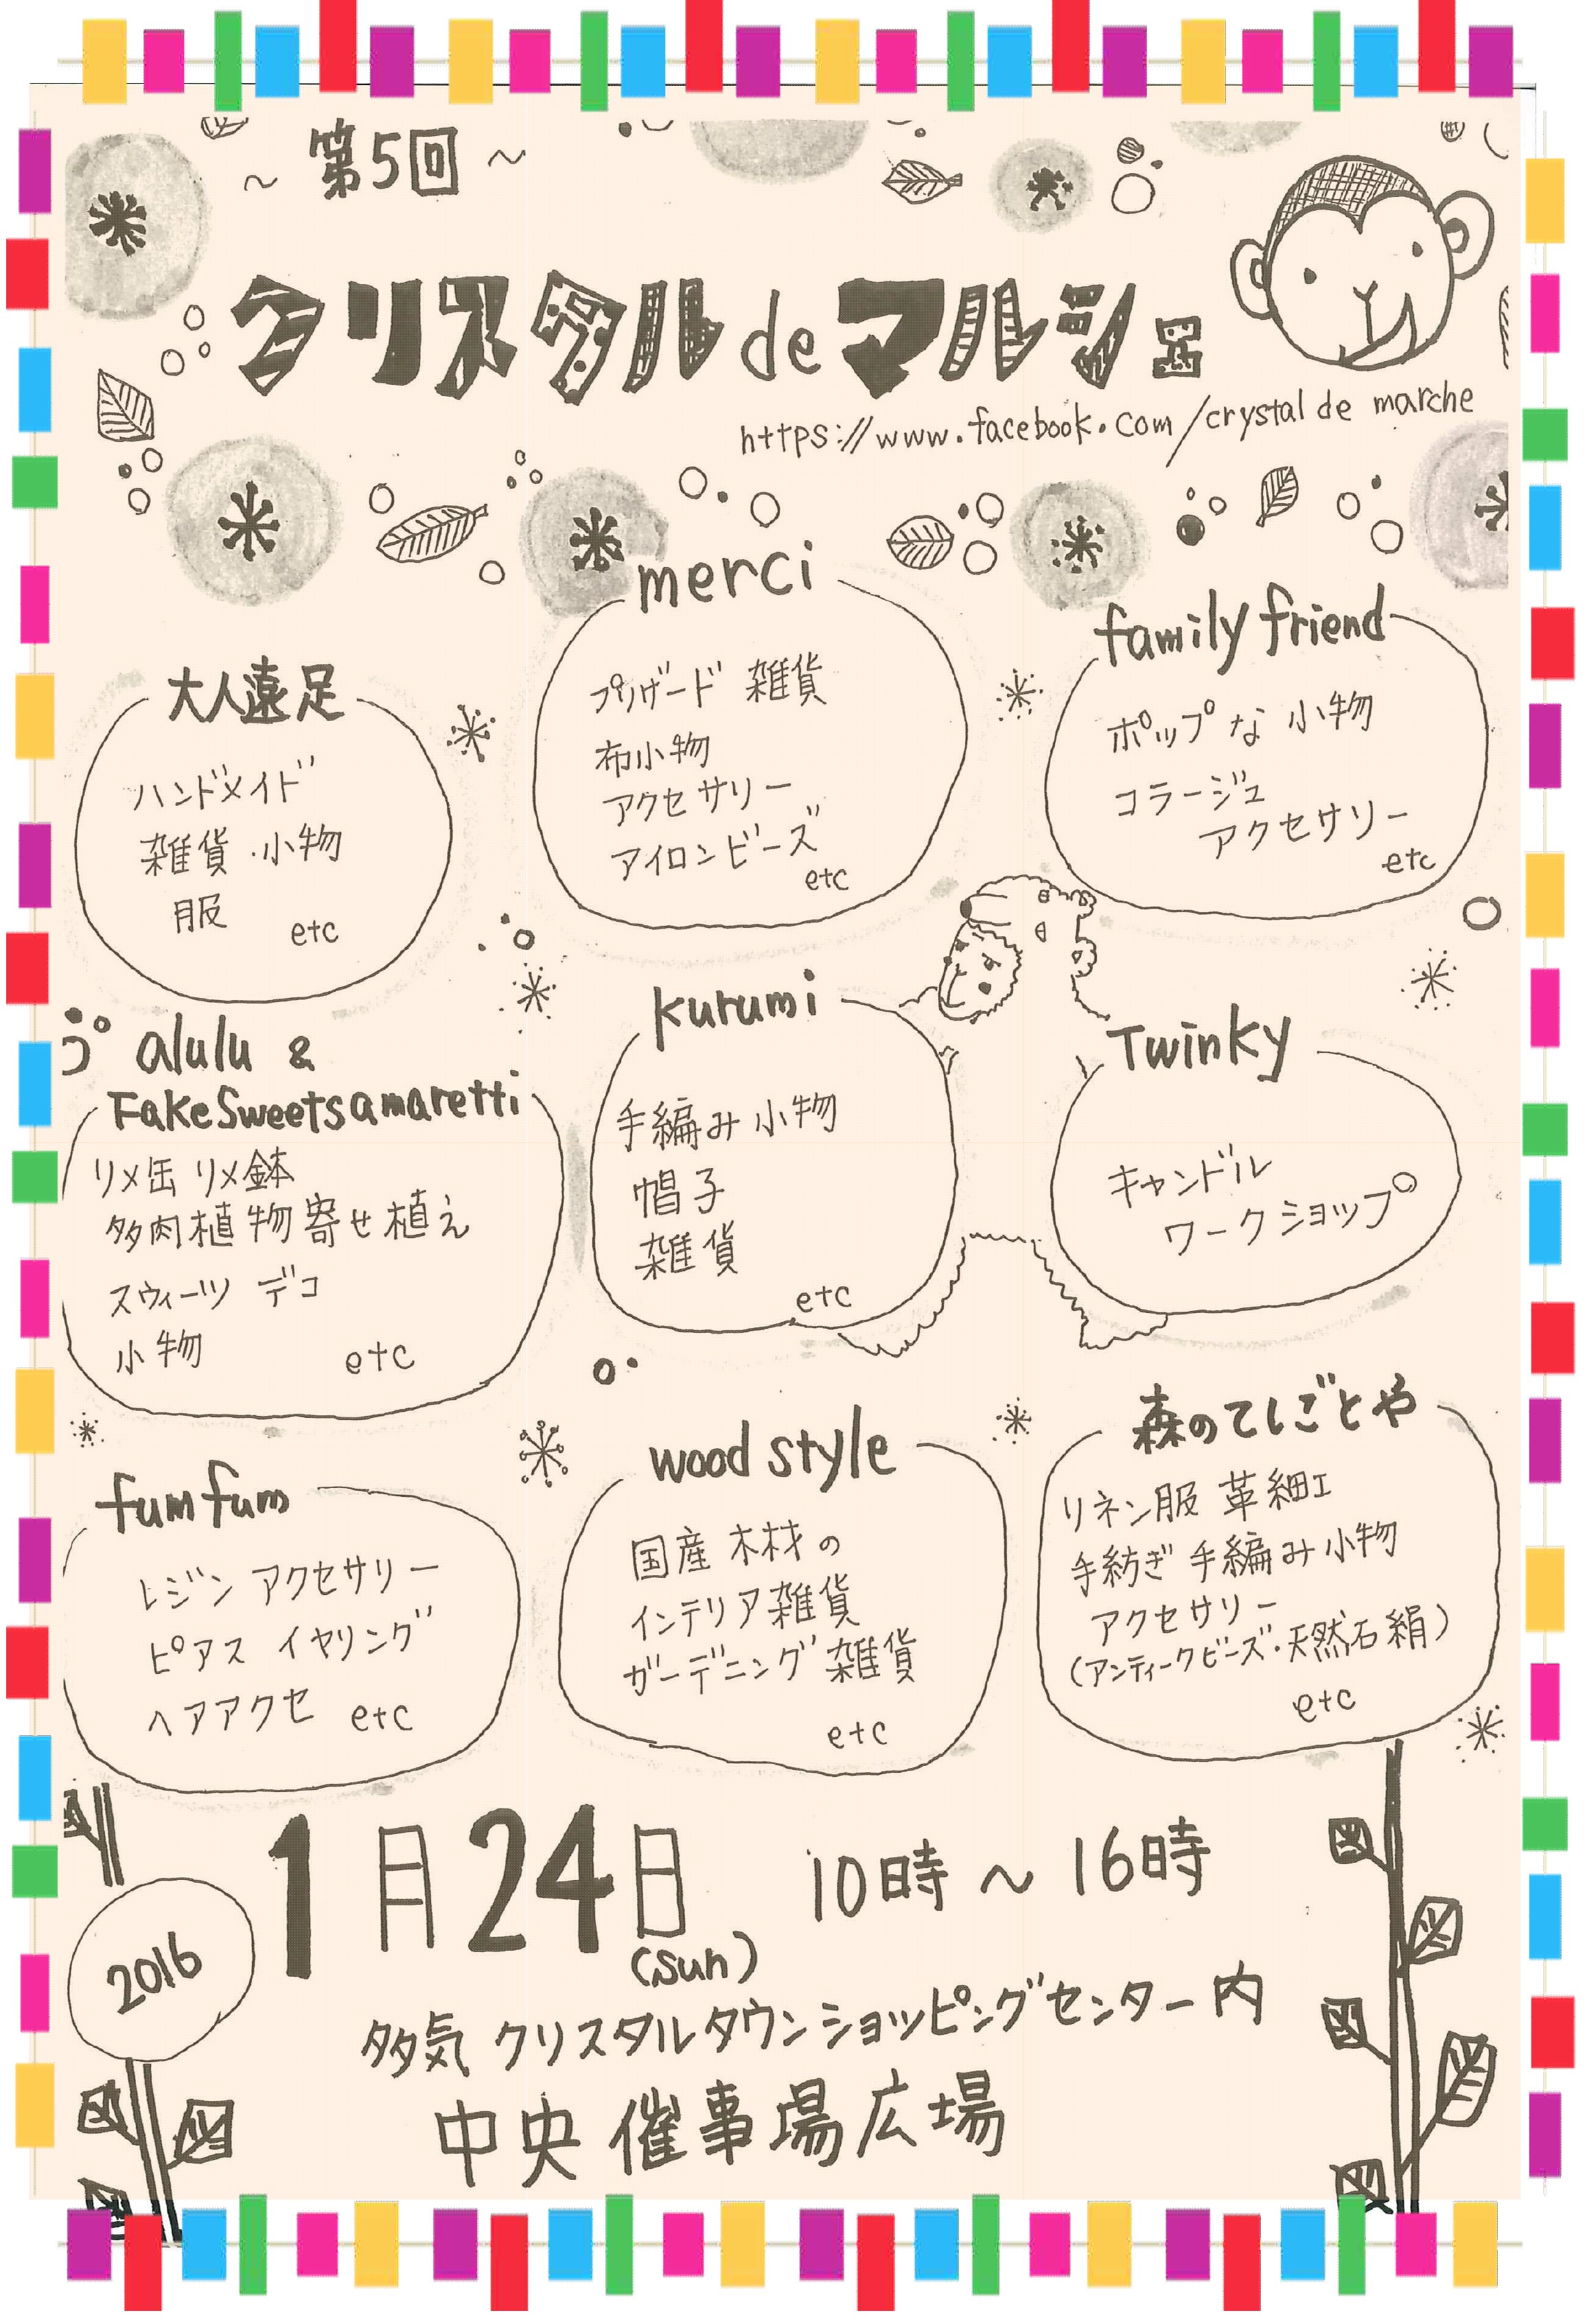 ～ 第5回 ～
クリスタル de マルシェ
https://www.facebook.com/crystal de marche
merci
プリザード 雑貨
布小物
アクセサリー
アイロンビーズ
etc
family friend
ポップな小物
コラージュ
アクセサリー
etc
大人遠足
ハンドメイド
雑貨・小物
服 etc
alulu &
Fake Sweets amaretti
リメ缶 リメ鉢
多肉植物寄せ植え
スウィーツ デコ
小物 etc
kurumi
手編み小物
帽子
雑貨
etc
Twinky
キャンドル
ワークショップ
fum fum
レジン アクセサリー
ピアス イヤリング
ヘアアクセ etc
wood style
国産木材の
インテリア雑貨
ガーデニング雑貨
etc
森のてしごとや
リネン服 革細工
手紡ぎ 手編み小物
アクセサリー
(アンティークビーズ・天然石 絹)
etc
2016
1月24日(sun) 10時～16時
多気 クリスタルタウンショッピングセンター内
中央 催事場広場